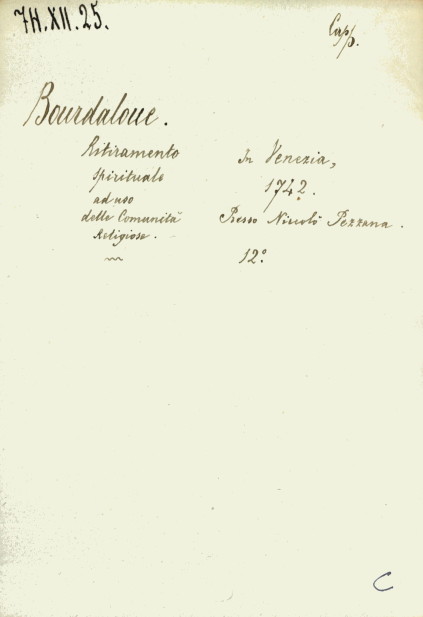 7H.XII.25.
Capp.
Bourdaloue.
Ritiramento
spirituale
ad uso
delle Comunità
Religiose.
In Venezia,
1742.
Presso Niccolò Pezzana.
12º
C